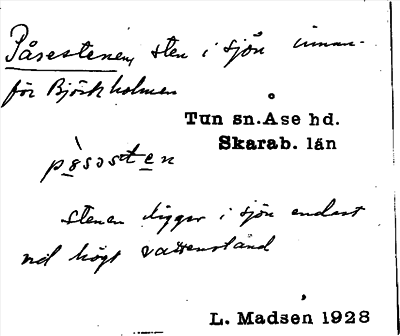 Påsestenen, sten i sjön innan-
för Björkholmen
Tun sn. Åse hd.
Skarab. län
stenen ligger i sjön endast
vid högt vattenstånd
L. Madsén 1928